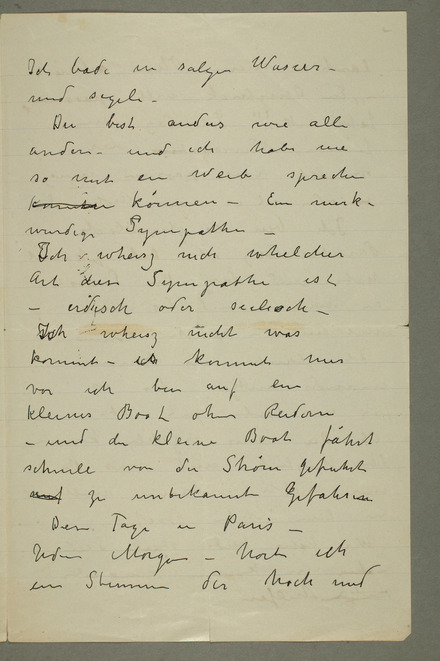 Ich bade in salzen Wasser –
und segele –
Du bist anders wie alle
andern – und ich habe nie
so mit en Weib sprechen
können – Ein merk-
würdige Sympathie –
Ich wheisz nich whelcher
Art diese Sympathie ist
– erdisch oder seelisch –
Ich wheisz nicht was
kommt – es kommt mir
vor ich bin auf ein
kleines Boot ohne Rudern
– und die kleine Boot fährt
schnele von die Ström gefuhrt
zu unbekannte Gefahren
Dein Tage in Paris –
Jeden Morgen – hörte ich
ein Stimme der hoch und